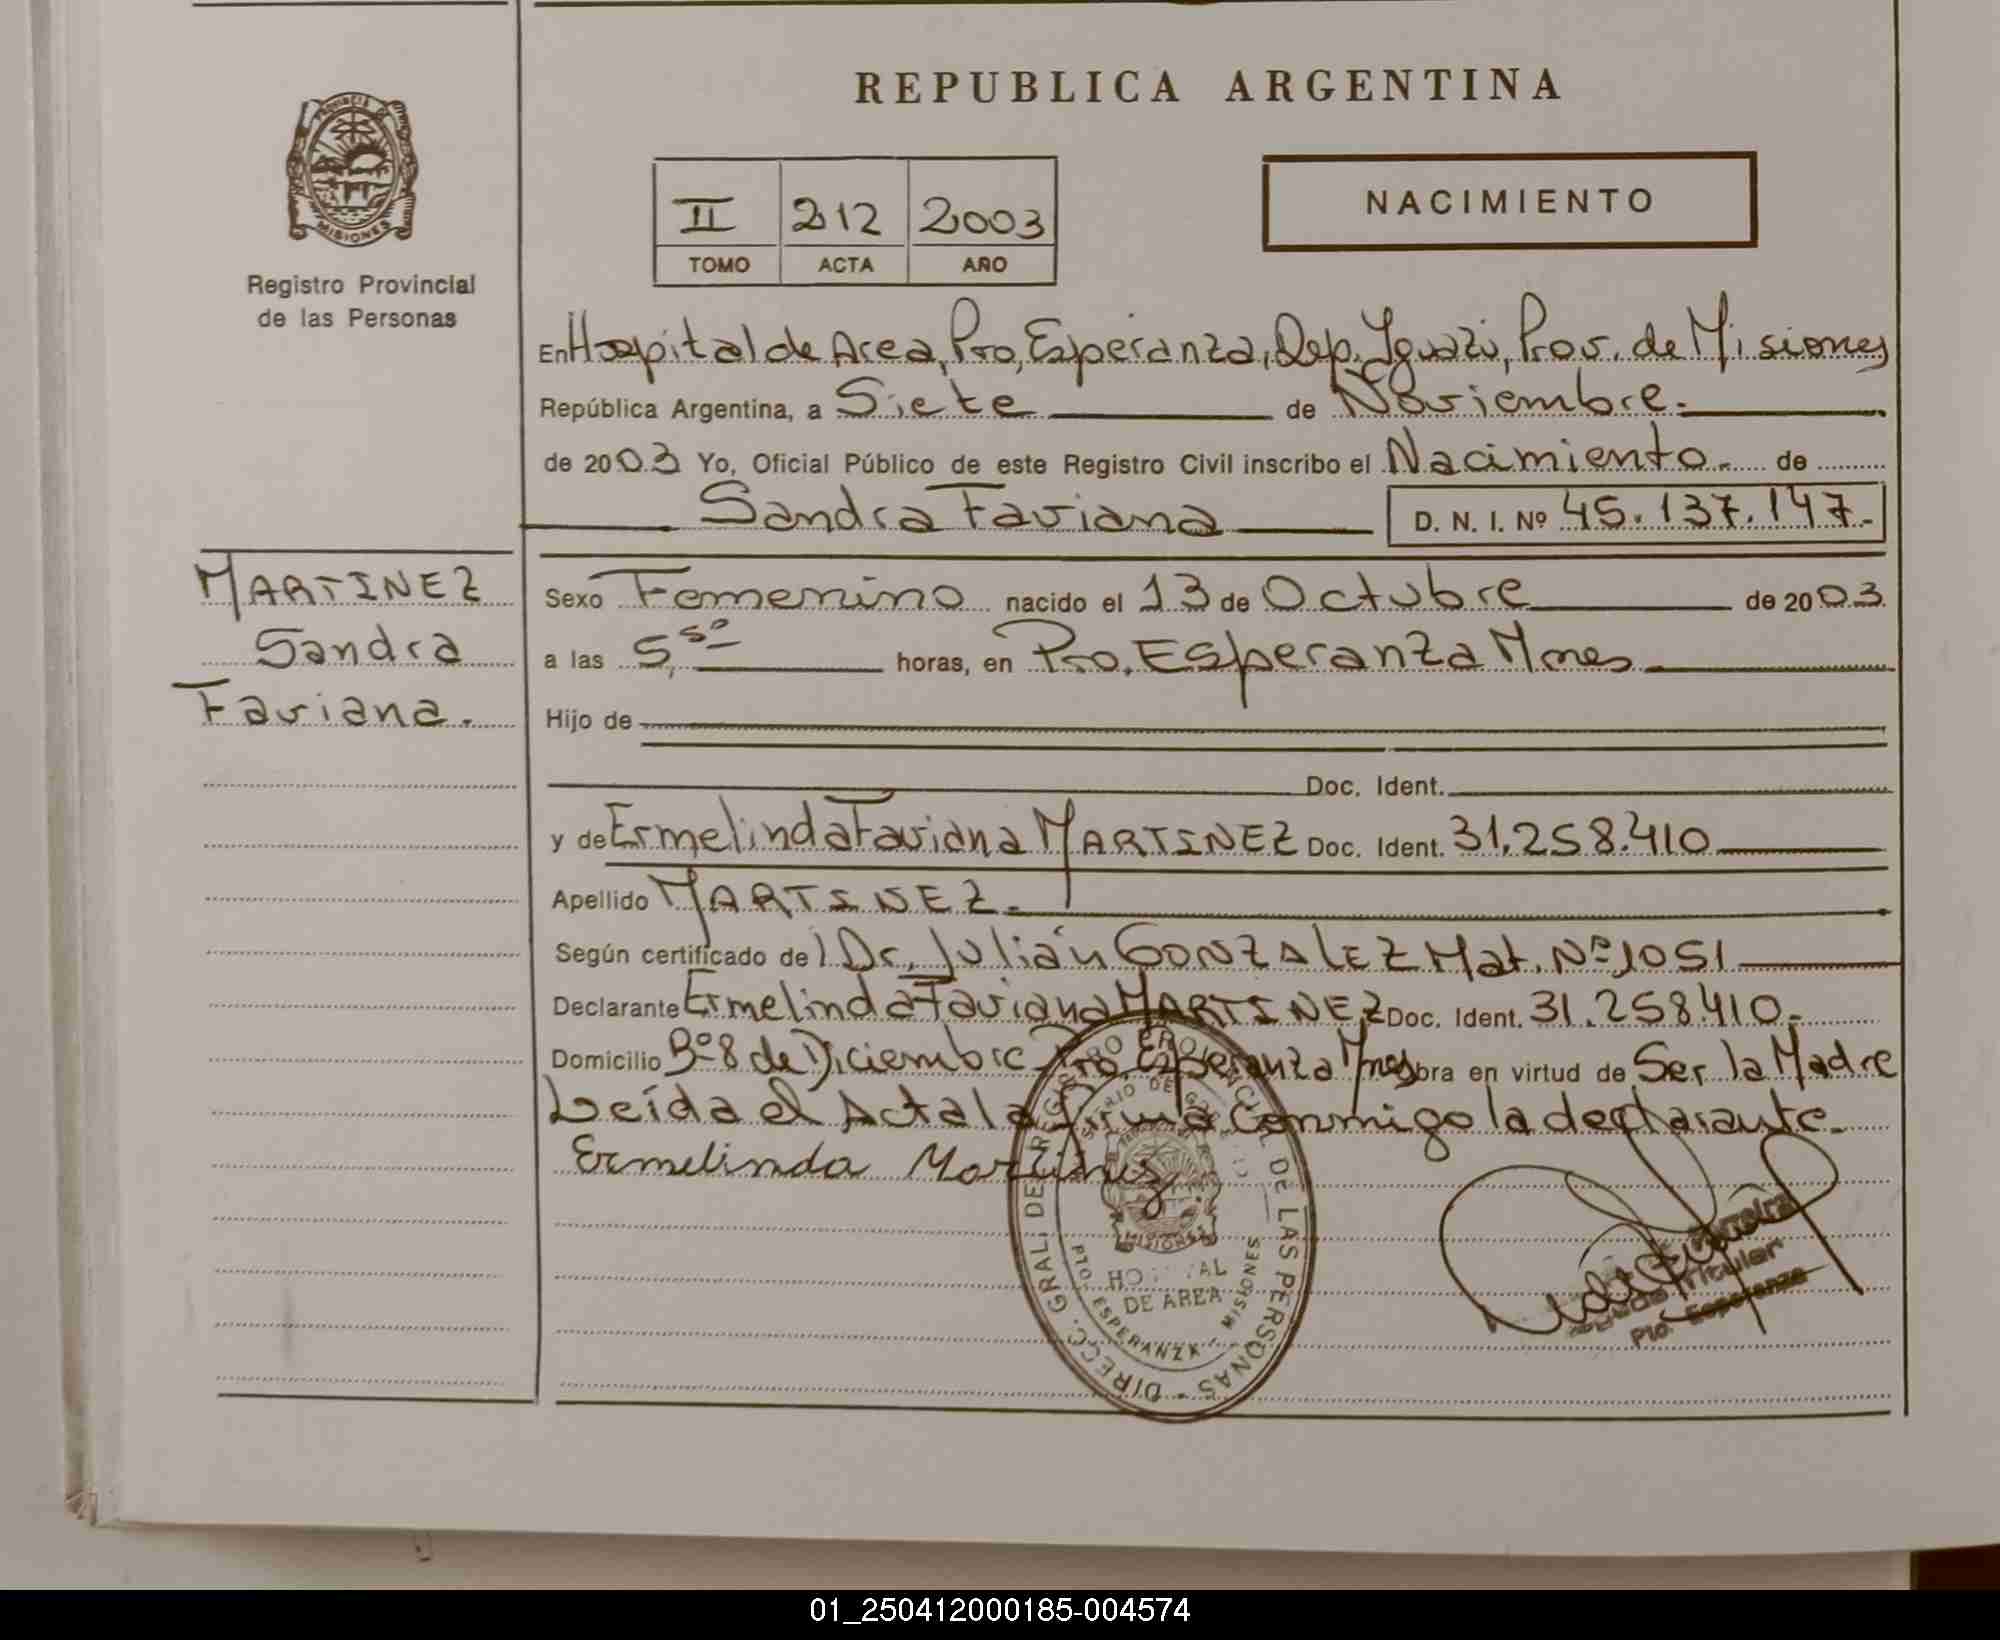 REPUBLICA ARGENTINA
PROVINCIA DE
MISIONES
Registro Provincial
de las Personas
II 212 2003
TOMO ACTA AÑO
NACIMIENTO
En Hospital de Area, Pto, Esperanza, Dep. Iguazú, Prov. de Misiones
República Argentina, a Siete de Noviembre.
de 2003 Yo, Oficial Público de este Registro Civil inscribo el Nacimiento. de
Sandra Faviana D. N. I. Nº 45.137.147.-
MARTINEZ
Sandra
Faviana.
Sexo Femenino nacido el 13 de Octubre de 2003.
a las 5,50 horas, en Pto. Esperanza Mnes
Hijo de
Doc. Ident.
y de Ermelinda Faviana MARTINEZ Doc. Ident. 31.258.410
Apellido MARTINEZ.
Según certificado de l Dr. Julián GONZALEZ Mat. Nº 1051
Declarante Ermelinda Faviana MARTINEZ Doc. Ident. 31.258.410.-
Domicilio Bº 8 de Diciembre Pto. Esperanza Mnes obra en virtud de Ser la Madre
Leída el Acta la firma conmigo la declarante.
Ermelinda Martinez
DIRECC. GRAL. DE REGISTRO PROVINCIAL DE LAS PERSONAS
MISIONES
DE AREA
PTO. ESPERANZA MISIONES
Titular
Pto. Esperanza
01_250412000185-004574